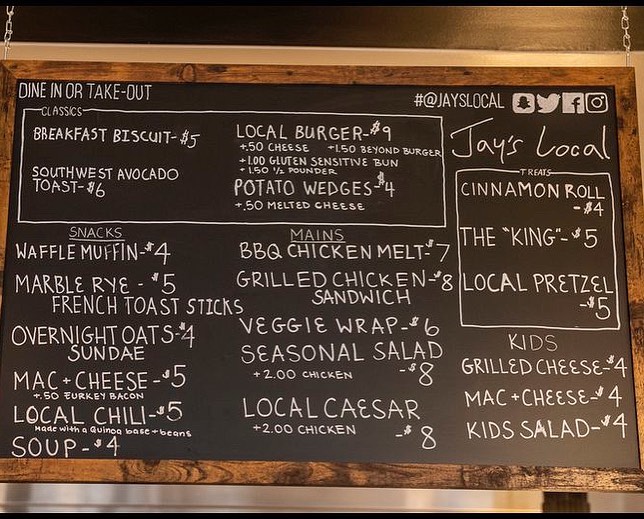 DINE IN OR TAKE-OUT
#@JAYSLOCAL
Jay's Local
CLASSICS
BREAKFAST BISCUIT-$5
SOUTHWEST AVOCADO
TOAST-$6
LOCAL BURGER-$9
+.50 CHEESE +1.50 BEYOND BURGER
+1.00 GLUTEN SENSITIVE BUN
+1.50 1/2 POUNDER
POTATO WEDGES-$4
+.50 MELTED CHEESE
SNACKS
WAFFLE MUFFIN-$4
MARBLE RYE-$5
FRENCH TOAST STICKS
OVERNIGHT OATS-$4
SUNDAE
MAC+CHEESE-$5
+.50 TURKEY BACON
LOCAL CHILI-$5
Made with a Quinoa base+beans
SOUP-$4
MAINS
BBQ CHICKEN MELT-$7
GRILLED CHICKEN-$8
SANDWICH
VEGGIE WRAP-$6
SEASONAL SALAD
+2.00 CHICKEN -$8
LOCAL CAESAR
+2.00 CHICKEN -$8
TREATS
CINNAMON ROLL
-$4
THE "KING"-$5
LOCAL PRETZEL
-$5
KIDS
GRILLED CHEESE-$4
MAC+CHEESE-$4
KIDS SALAD-$4